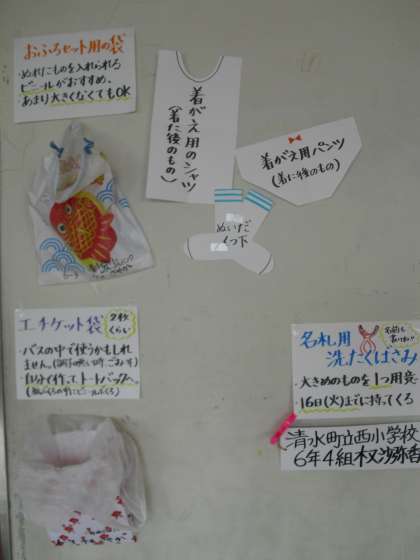 おふろセット用の袋
ぬれたものを入れられる
ビニールがおすすめ。
あまり大きくなくてもOK
着がえ用のシャツ
(着た後のもの)
着がえ用パンツ
(着た後のもの)
ぬいだ
くつ下
エチケット袋
2枚
くらい
バスの中で使うかもしれ
ません。
トートバッグへ。
名札用
洗たくばさみ
名前も
大きめのものを1つ用意
16日(火)までに持ってくる
清水町立西小学校
6年4組